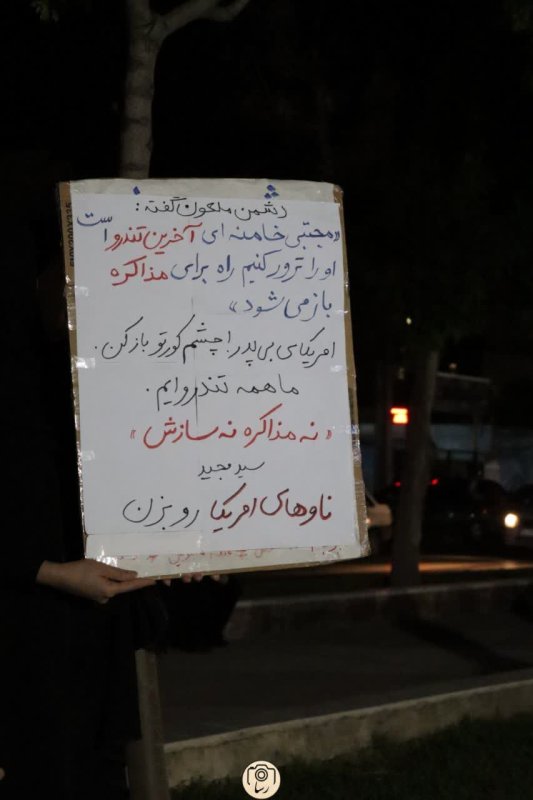 دشمن ملعون گفته:
«مجتبی خامنه ای آخرین تندرو است
او را ترور کنیم راه برای مذاکره
باز می شود»
امریکای بی پدر! چشم کورتو باز کن.
ما همه تندروایم.
«نه مذاکره نه سازش»
سید مجید
ناوهای امریکا رو بزن